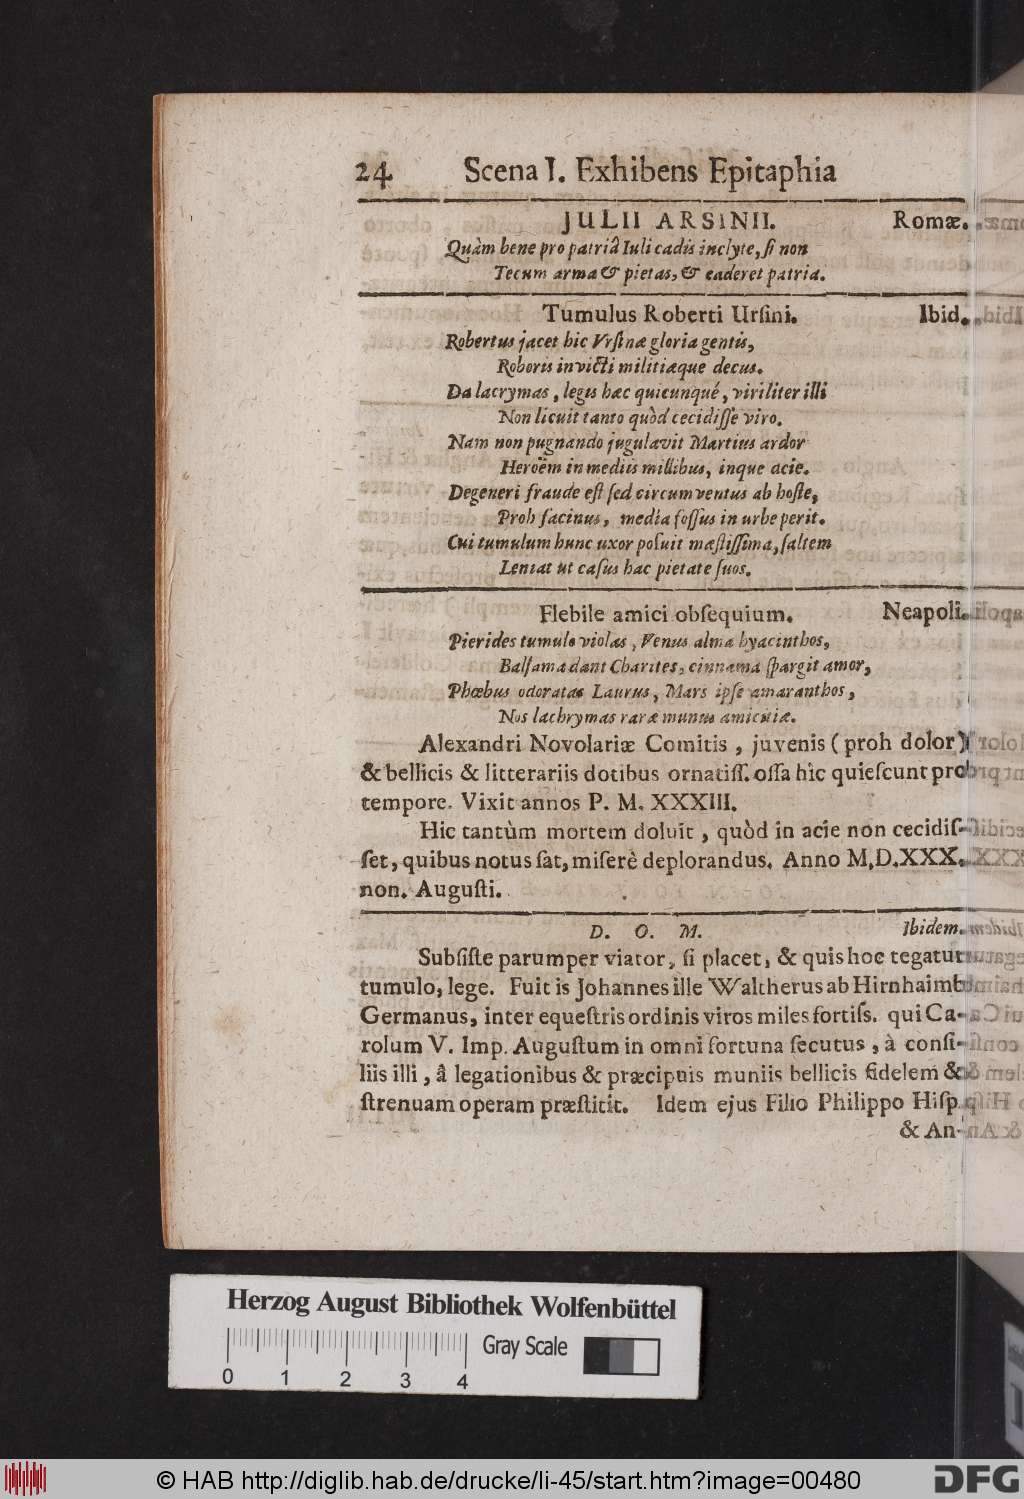 24 Scena I. Exhibens Epitaphia
JULII ARSINII. Romæ.
Quàm bene pro patriâ Iuli cadis inclyte, ſi non
Tecum arma & pietas, & caderet patria.
Tumulus Roberti Urſini. Ibid.
Robertus jacet hic Vrſinæ gloria gentis,
Roboris invicti militiæque decus.
Da lacrymas, legis hæc quicunqué, viriliter illi
Non licuit tanto quòd cecidiſſe viro.
Nam non pugnando jugulavit Martius ardor
Heroëm in mediis millibus, inque acie.
Degeneri fraude eſt ſed circumventus ab hoſte,
Proh facinus, media foſſus in urbe perit.
Cui tumulum hunc uxor poſuit mæſtiſſima, ſaltem
Leniat ut caſus hac pietate ſuos.
Flebile amici obſequium. Neapoli.
Pierides tumulo violas, Venus alma hyacinthos,
Balſama dant Charites, cinnama ſpargit amor,
Phœbus odoratas Laurus, Mars ipſe amaranthos,
Nos lachrymas raræ munus amicitiæ.
Alexandri Novolariæ Comitis, juvenis (proh dolor)
& bellicis & litterariis dotibus ornatiſſ. oſſa hìc quieſcunt pro
tempore. Vixit annos P. M. XXXIII.
Hic tantùm mortem doluit, quòd in acie non cecidiſ-
ſet, quibus notus ſat, miſerè deplorandus. Anno M,D.XXX.
non. Auguſti.
D. O. M. Ibidem.
Subſiſte parumper viator, ſi placet, & quis hoc tegatur
tumulo, lege. Fuit is Johannes ille Waltherus ab Hirnhaimb
Germanus, inter equeſtris ordinis viros miles fortiſs. qui Ca-
rolum V. Imp. Auguſtum in omni fortuna ſecutus, à conſi-
liis illi, â legationibus & præcipuis muniis bellicis fidelem &
ſtrenuam operam præſtitit. Idem ejus Filio Philippo Hiſp.
& An-
Herzog August Bibliothek Wolfenbüttel
Gray Scale
0 1 2 3 4
© HAB http://diglib.hab.de/drucke/li-45/start.htm?image=00480
DFG